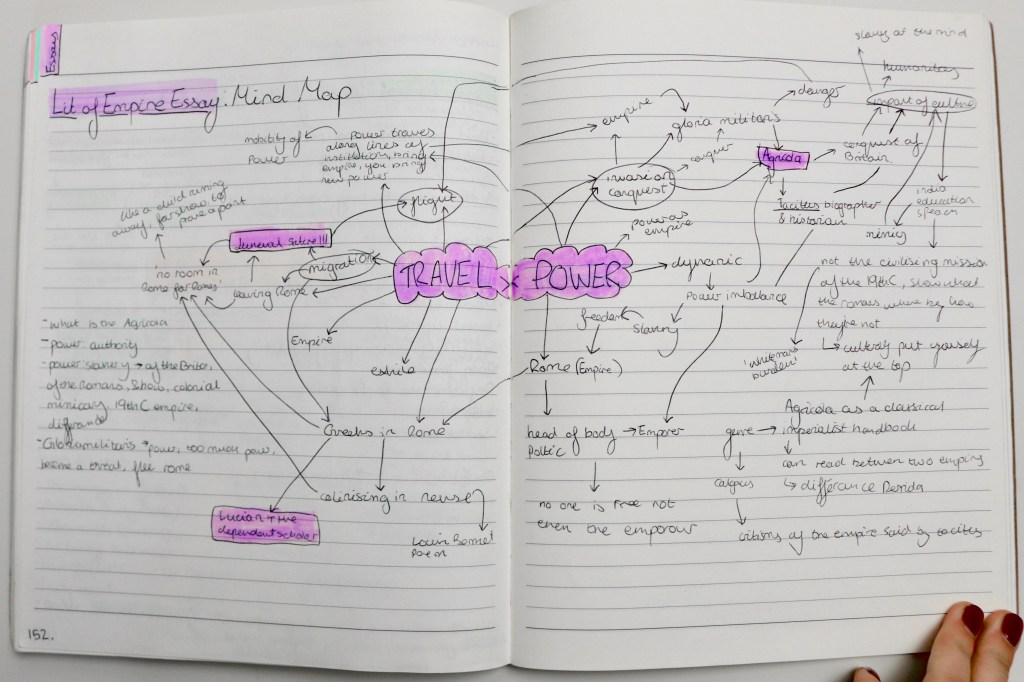 Essays
Lit of Empire Essay: Mind Map
mobility of
Power
Power traves
along lines of
institution, bring
empire, you bring
new power
flight
like a child running
away, far show to
prove a part
Juvenal Satire 3!!!
migration
'no room in
Rome for Romes'
leaving Rome
TRAVEL
Empire
exhile
- What is the Agricola
- power authority
- power slavery → of the Briton,
of the Romans, show, colonial
mimicary, 19th C empire,
differance
- Gloria militaris → power, too much power,
become a threat, flee rome
Greeks in Rome
colonising in reverse
Lucian + the
dependent scholar
Louise Bennet
Poem
152.
slavery of the mind
humanitas
import of culture
danger
empire
gloria militaris
conquer
Agricola
conquest of
Britain
invasion
conquest
Tacitus biographer
& historian
india
education
speech
mimicry
Power as
empire
POWER
dynamic
Power imbalance
freedom
slavery
Rome (Empire)
not the civilising mission
of the 19th C, show what
the romans where by how
they're not
↳ culturaly put yourself
at the top
'white mans
burden'
head of body → Emporer
Politic
no one is free not
even the emporour
genre →
Agricola as a classical
imperialist handbook
can read between two empires
↳ differance Derrida
calgacus
critisms of the empire said by tacitus